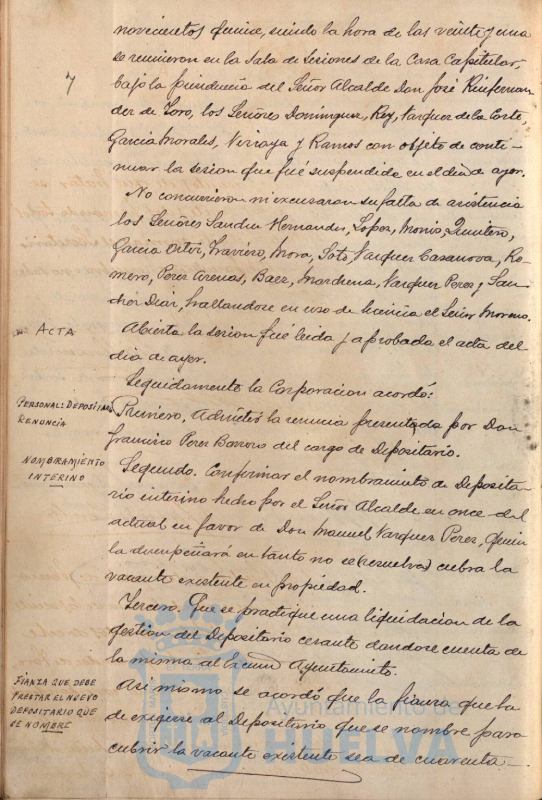 novecientos quince, siendo la hora de las veinte y una
se reunieron en la Sala de Sesiones de la Casa Capitular,
7
bajo la presidencia del Señor Alcalde Don José
der de Toro, los Señores Dominguez, Rey, Vazquez de la Corte,
Garcia Morales, Vizcaya y Ramos con objeto de conti-
nuar la sesion que fué suspendida en el dia de ayer.
No concurrieron ni excusaron su falta de asistencia
los Señores Sanchez Hernandez, Lopez, Monis, Quintero,
Garcia Ortiz, Traviero, Mora, Soto, Vazquez Casanova, Ro-
mero, Perez Arenas, Baez, Marchena, Vazquez Perez y San-
chez Diaz, hallandose en uso de licencia el Señor Moreno.
ACTA
Abierta la sesion fué leida y aprobada el acta del
dia de ayer.
Seguidamente la Corporacion acordó:
PERSONAL: DEPOSITARIO
RENUNCIA
Primero. Admitir la renuncia presentada por Don
Francisco Perez Barroso del cargo de Depositario.
NOMBRAMIENTO
INTERINO
Segundo. Confirmar el nombramiento de Deposita-
rio interino hecho por el Señor Alcalde en once del
actual en favor de Don Manuel Vazquez Perez, quien
la desempeñará en tanto no se (resuelva) cubra la
vacante existente en propiedad.
Tercero. Que se practique una liquidacion de la
gestion del Depositario cesante dandose cuenta de
la misma al Excmo Ayuntamiento.
FIANZA QUE DEBE
PRESTAR EL NUEVO
DEPOSITARIO QUE
SE NOMBRE
Asi mismo se acordó que la fianza que ha
de exigirse al Depositario que se nombre para
cubrir la vacante existente sea de cuarenta
Ayuntamiento de
HUELVA